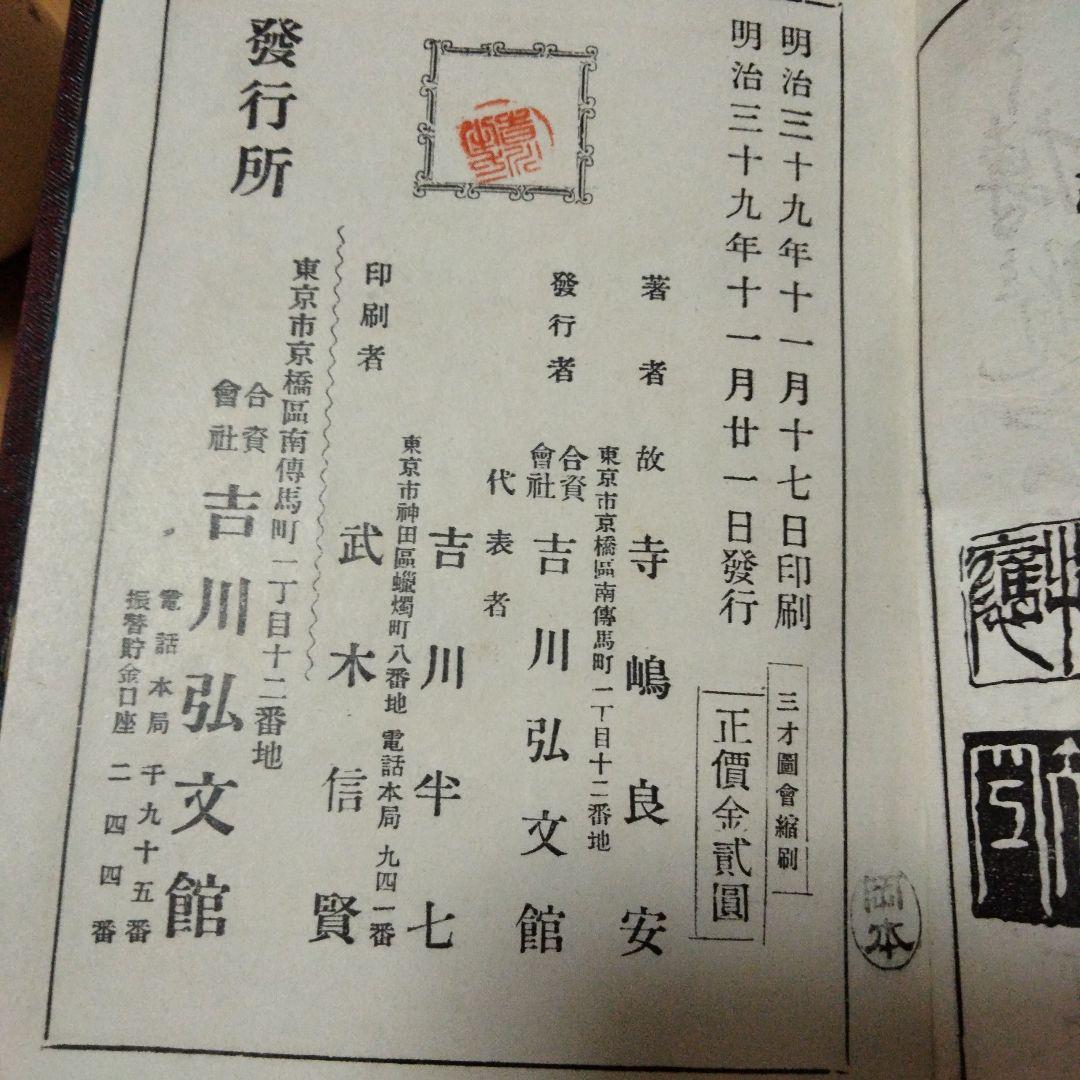 明治三十九年十一月十七日印刷
明治三十九年十一月廿一日發行
三才圖會縮刷
正價金貳圓
著者 故 寺嶋良安
東京市京橋區南傳馬町一丁目十二番地
發行者 合資會社 吉川弘文館
代表者 吉川半七
東京市神田區蠟燭町八番地 電話本局九四一番
印刷者 武木信賢
東京市京橋區南傳馬町一丁目十二番地
發行所 合資會社 吉川弘文館
電話本局千九十五番
振替貯金口座二四四番
岡本